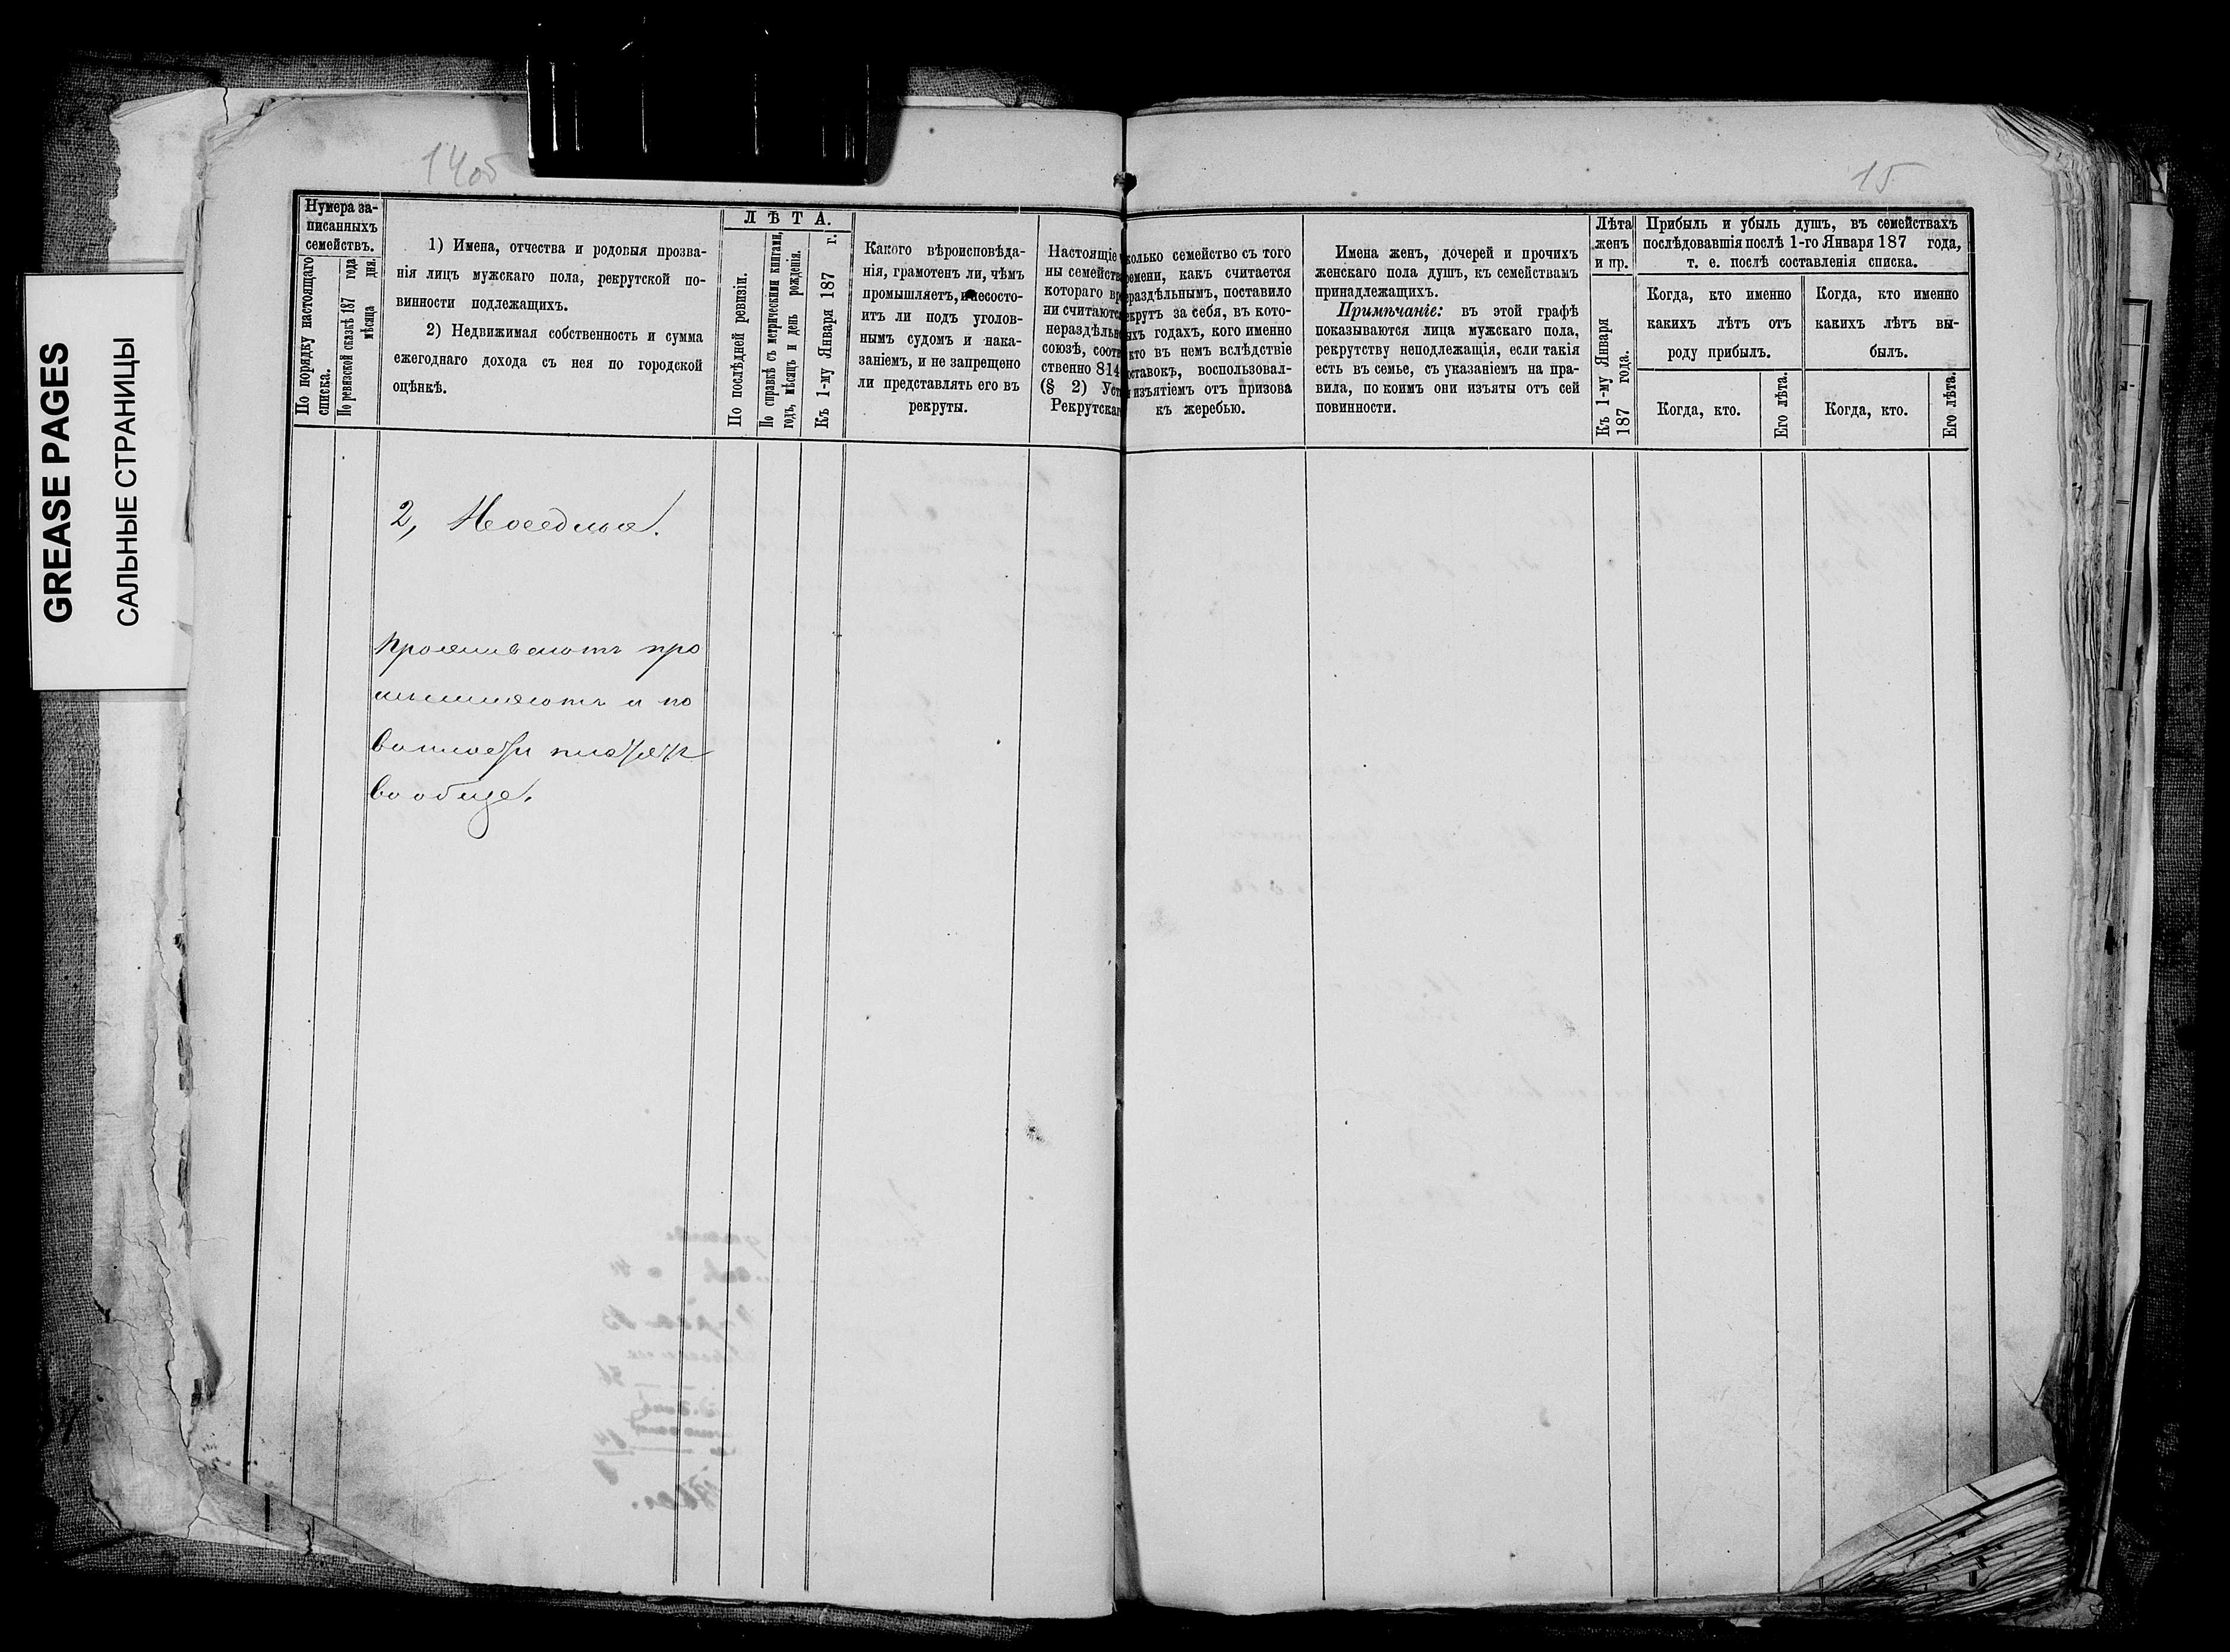 GREASE PAGES
САЛЬНЫЕ СТРАНИЦЫ
14об
15
Нумера за-
писанныхъ
семействъ.
По порядку настоящаго
списка.
По ревизской сказкѣ 187 года
мѣсяца дня.
1) Имена, отчества и родовыя прозва-
нія лицъ мужскаго пола, рекрутской по-
винности подлежащихъ.
2) Недвижимая собственность и сумма
ежегоднаго дохода съ нея по городской
оцѣнкѣ.
ЛѢТА.
По послѣдней ревизіи.
По справкѣ съ метрическими книгами,
годъ, мѣсяцъ и день рожденія.
Къ 1-му Января 187 г.
Какого вѣроисповѣда-
нія, грамотенъ ли, чѣмъ
промышляетъ, и несосто-
итъ ли подъ уголов-
нымъ судомъ и нака-
заніемъ, и не запрещено
ли представлять его въ
рекруты.
Настоящіе
ны семейства
котораго вр
ни считаются
нераздѣльн
союзѣ, соотв
ственно 814
(§ 2) Уст
Рекрутскаг
колько семейство съ того
ремени, какъ считается
ераздѣльнымъ, поставило
екрутъ за себя, въ кото-
ыхъ годахъ, кого именно
кто въ немъ вслѣдствіе
оставокъ, воспользовал-
изъятіемъ отъ призова
къ жеребью.
Имена женъ, дочерей и прочихъ
женскаго пола душъ, къ семействамъ
принадлежащихъ.
Примѣчаніе: въ этой графѣ
показываются лица мужскаго пола,
рекрутству неподлежащія, если такія
есть въ семьѣ, съ указаніемъ на пра-
вила, по коимъ они изъяты отъ сей
повинности.
Лѣта
женъ
и пр.
Къ 1-му Января
187 года.
Прибыль и убыль душъ, въ семействахъ
послѣдовавшія послѣ 1-го Января 187 года,
т. е. послѣ составленія списка.
Когда, кто именно
какихъ лѣтъ отъ
роду прибылъ.
Когда, кто.
Его лѣта.
Когда, кто именно
какихъ лѣтъ вы-
былъ.
Когда, кто.
Его лѣта.
2,
проживаютъ про
мышляютъ и по
винности платятъ
вообще.